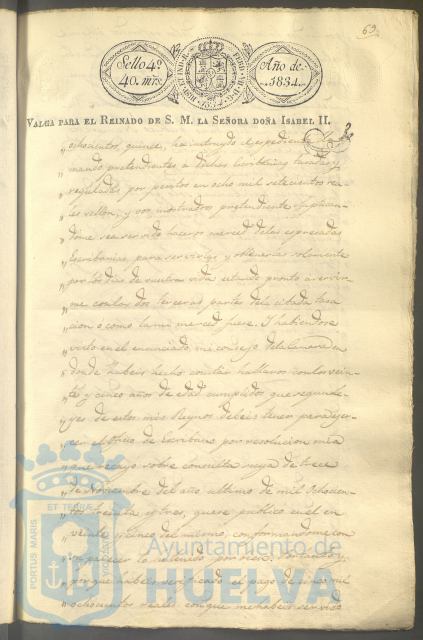 69
Sello 4º
40. mrs.
HISP. ET IND. R.
FERD. VII. D. G.
1834
Año de
1834.
VALGA PARA EL REINADO DE S. M. LA SEÑORA DOÑA ISABEL II.
„ ochocientos, quince, ha instruido el expediente
„ mando pretendientes a dichas Escribanias tasadas y
„ reguladas por peritos en ocho mil setecientos rea
„ les vellon, y vos, mostrados pretendiente suplican
„ dome sea servido haceros merced de las expresadas
„ Escribanias, para servirlas y obtenerlas solamente
„ por los dias de vuestra vida estando pronto a servir
„ me con las dos terceras partes de la citada tasa
„ cion o como la mi merced fuere. Y habiendose
„ visto en el enunciado, mi consejo de la Camara en
„ donde habeis hecho constar hallaros con los vein
„ te y cinco años de edad cumplidos que segun le
„ yes de estos mis Reynos debeis tener para ejer
„ cer el Oficio de Escribano por resolucion mia
„ que recayo sobre consulta suya de trece
„ de Noviembre del año ultimo de mil Ochocien
„ tos treinta y tres, que se publicó en el en
„ veinte y cinco del mismo, conformandome con
„ su parecer lo he tenido por bien,
„ porque habeis verificado el pago de cinco mil
„ ochocientos reales con que me habeis servido
PORTUS MARIS
ET TERRÆ
CUSTODIA
Ayuntamiento de
HUELVA